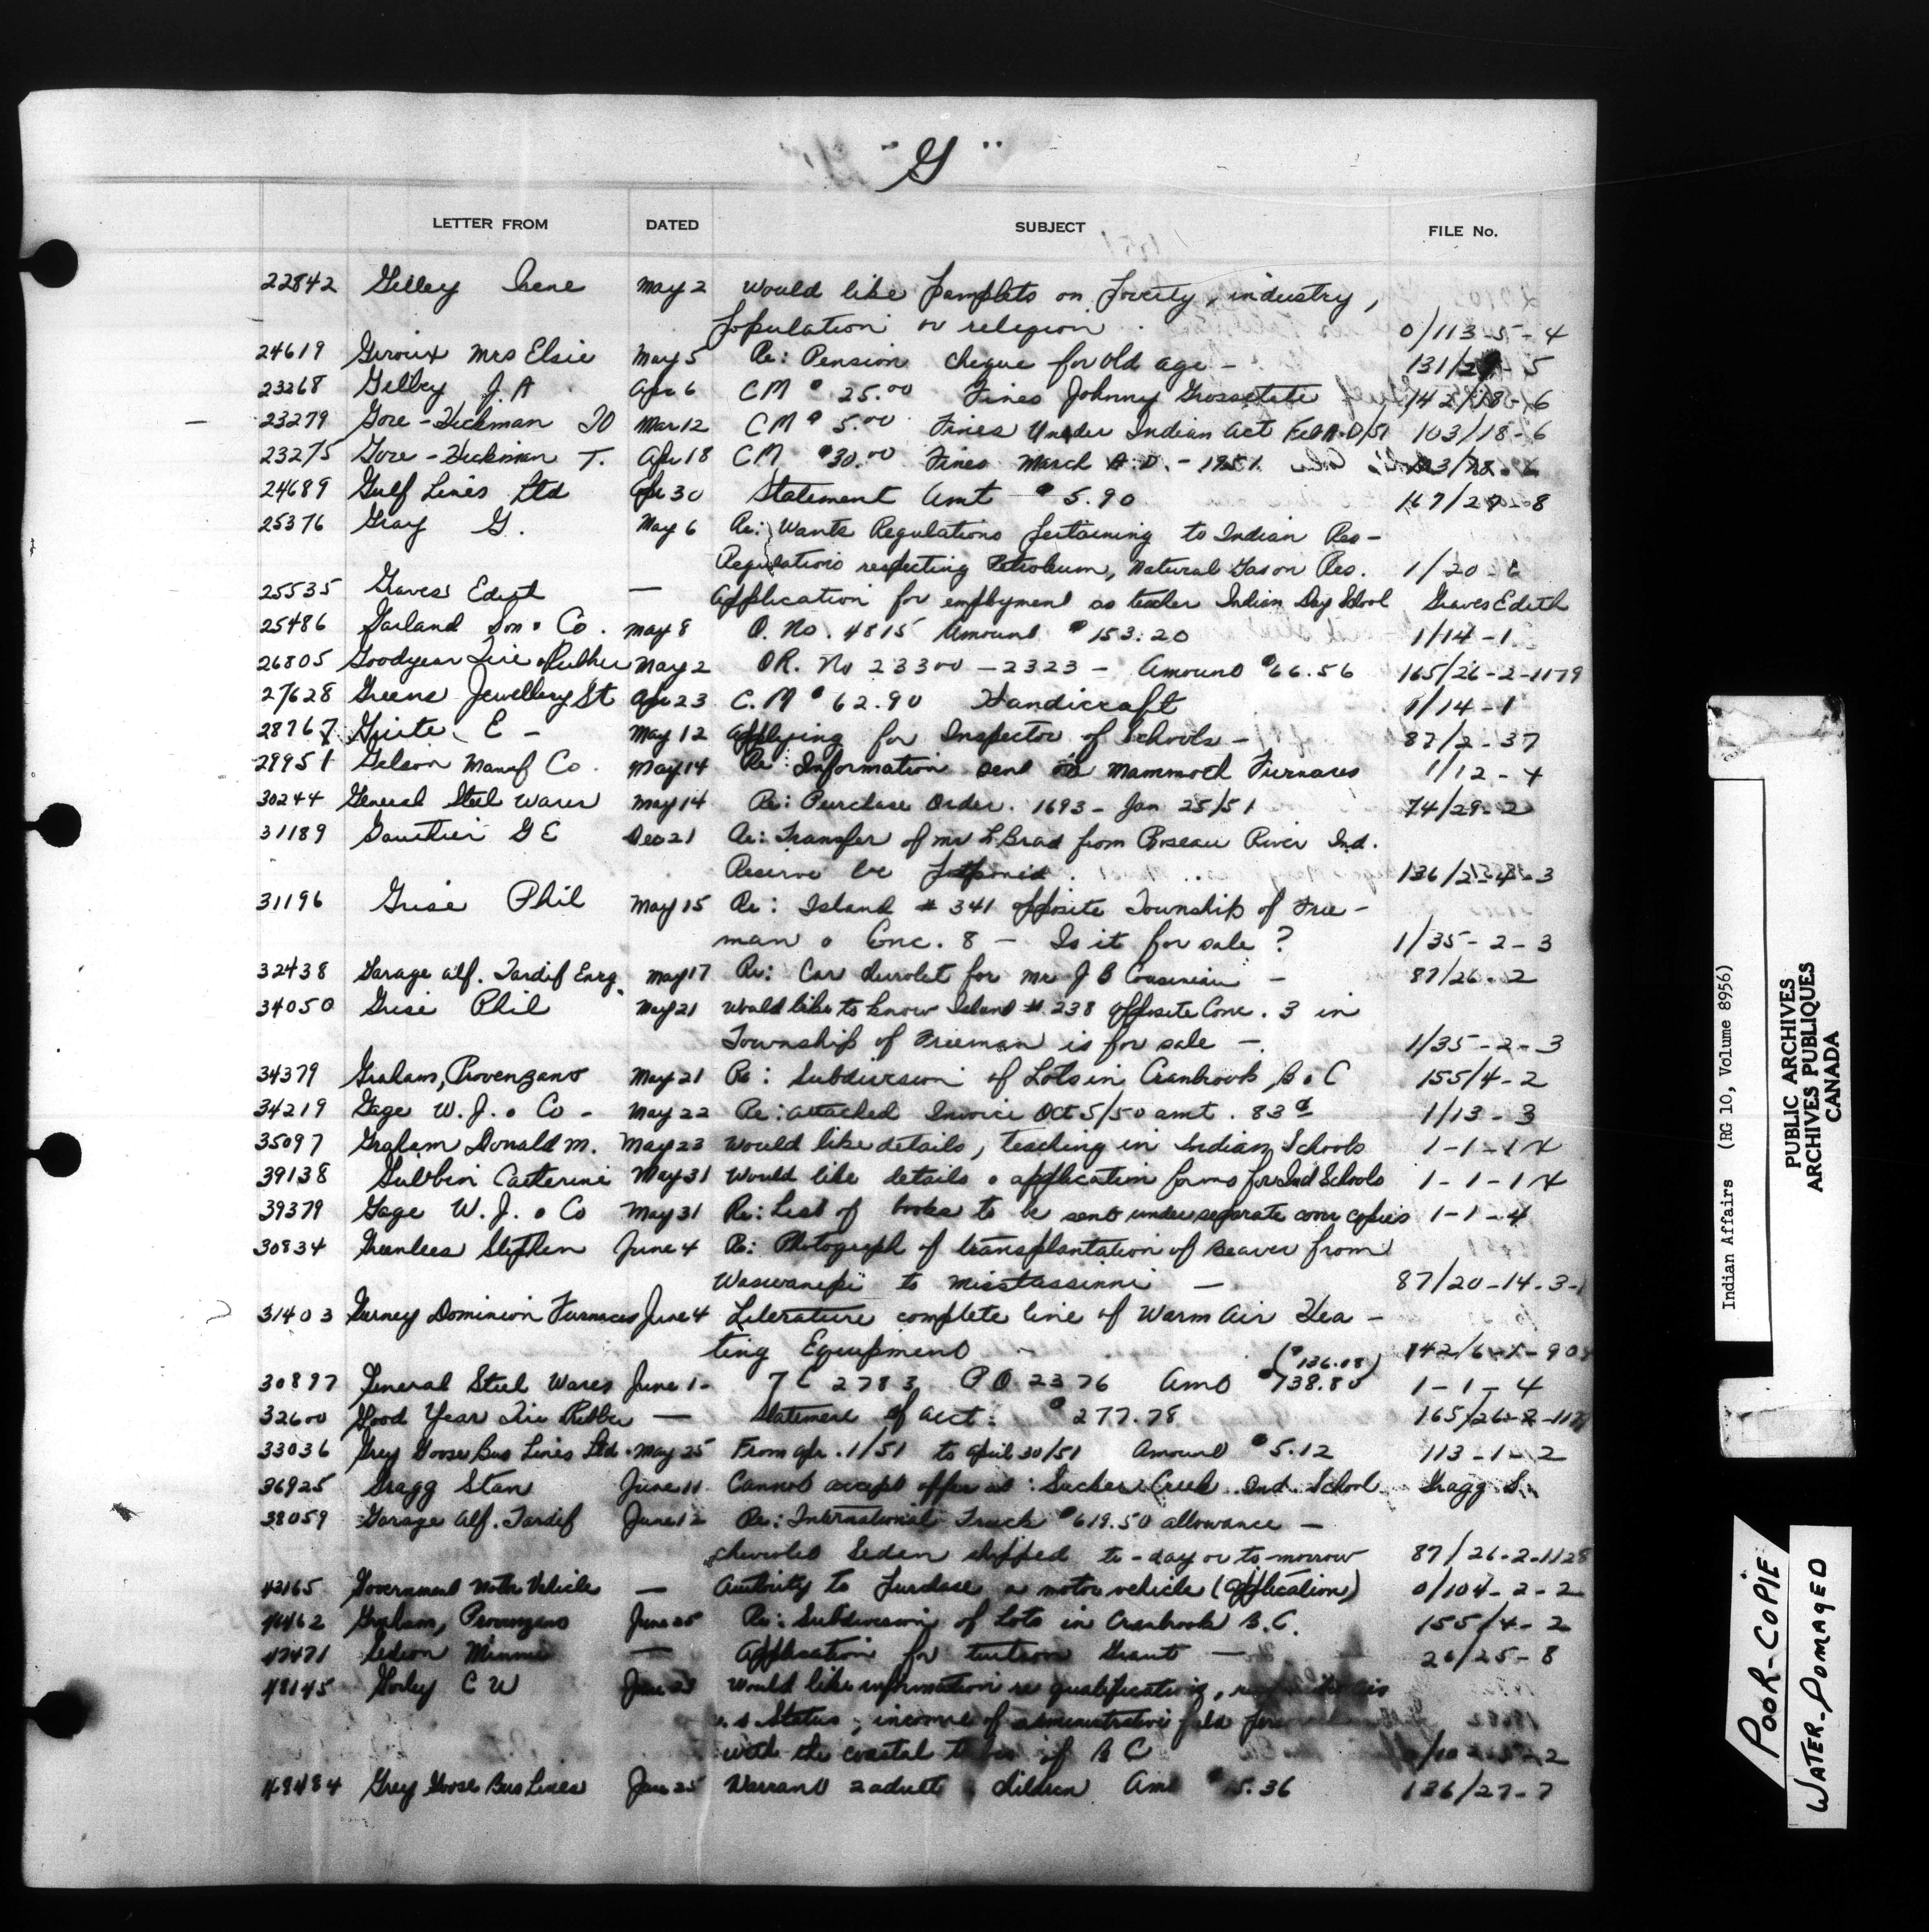 "G"
LETTER FROM DATED SUBJECT FILE No.
22842 Gelley Irene May 2 Would like pamplets on
population or religion. 0/113-5-4
24619 Giroux Mrs Elsie May 5 Re: Pension cheque for old age - 131/29-5
23268 Gelbey J. A Apr 6 CM $25.00 Fines Johnny Grossetete 142/18-6
23279 Gore-Hickman TO Mar 12 CM $5.00 Fines Under Indian Act 103/18-6
23275 Gore-Hickman T. Apr 18 CM $30.00 Fines March A.D. - 1951
24689 Gulf Lines Ltd Apr 30 Statement Amt $5.90 167/27-8
25376 Gray G. May 6 Re: Wants Regulations pertaining to Indian Res-
Regulations respecting Petroleum, Natural Gas on Res. 1/20-6
25535 Graves Edith — Application for employment as teacher Indian Day School Graves Edith
25486 Garland Son & Co. May 8 O. No. 4815 Amount $153.20 1/14-1
26805 Goodyear Tire & Rubber May 2 OR. No 23300-2323- Amount $66.56 165/26-2-1179
27628 Greens Jewellery St Apr 23 C.M $62.90 Handicraft 1/14-1
28767 Guite E - May 12 Applying for Inspector of Schools - 87/2-37
29951 Gelson Manuf Co. May 14 Re: Information sent on Mammoth Furnaces 1/12-4
30244 General Steel Wares May 14 Re: Purchase Order. 1693- Jan 25/51 74/29-2
31189 Gauthier G E Dec 21 Re: Transfer of Mr L. Brad from Roseau River Ind.
Reserve be postponed. 136/
31196 Grise Phil May 15 Re: Island # 341 opposite Township of Free-
man & Conc. 8 - Is it for sale? 1/35-2-3
32438 Garage Alf. Tardif Enrg. May 17 Re: Car chevrolet for Mr J B Cousineau - 87/26-2
34050 Grise Phil May 21 Would like to know Island # 238 opposite Conc. 3 in
Township of Freeman is for sale - 1/35-2-3
34379 Graham, Provenzano May 21 Re: Subdivision of Lots in Cranbrook B.C 155/4-2
34219 Gage W. J. & Co - May 22 Re: attached Invoice Oct 5/50 amt. 83¢ 1/13-3
35097 Graham Donald M. May 23 Would like details, teaching in Indian Schools 1-1-14
39138 Gubbin Catherine May 31 Would like details & application forms for Ind Schools 1-1-14
39379 Gage W. J. & Co May 31 Re: List of books to be sent under separate cover copies 1-1-4
30834 Greenlees Stephen June 4 Re: Photograph of transplantation of Beaver from
Waswanipi to Misstassinni - 87/20-14-3-1
31403 Gurney Dominion Furnaces June 4 Literature complete line of Warm Air Hea-
ting Equipment - 142/6-
($136.08)
30897 General Steel Wares June 1- TC 2783 PO 2376 Amt $138.80 1-1-4
32600 Good Year Tire Rubber — Statement of acct: $277.78 165/26-2-117
33036 Grey Goose Bus Lines Ltd. May 25 From Apr. 1/51 to April 30/51 Amount $5.12 113-1-2
36925 Gragg Stan June 11 Cannot accept offer at: Sucker Creek Ind. School Gragg S.
38059 Garage Alf. Tardif June 12 Re: International Truck $619.50 allowance -
chevrolet Sedan shipped to-day or to-morrow 87/26-2-1128
42165 Government Motor Vehicle — Authority to purchase a motor vehicle (application) 0/104-2-2
Graham, Provenzano June 25 Re: Subdivision of Lots in Cranbrook B.C. 155/4-2
Minnie — Application for tuition Grant - 26/25-8
48145 C W Would like information re qualifications,
Status, income of administrative field
with the coastal tribes of B C
48484 Grey Goose Bus Lines June 25 Warrant 2 adults & children Amt $15.36 136/27-7
Indian Affairs (RG 10, Volume 8956)
PUBLIC ARCHIVES
ARCHIVES PUBLIQUES
CANADA
POOR-COPIE
WATER-DOMAGED